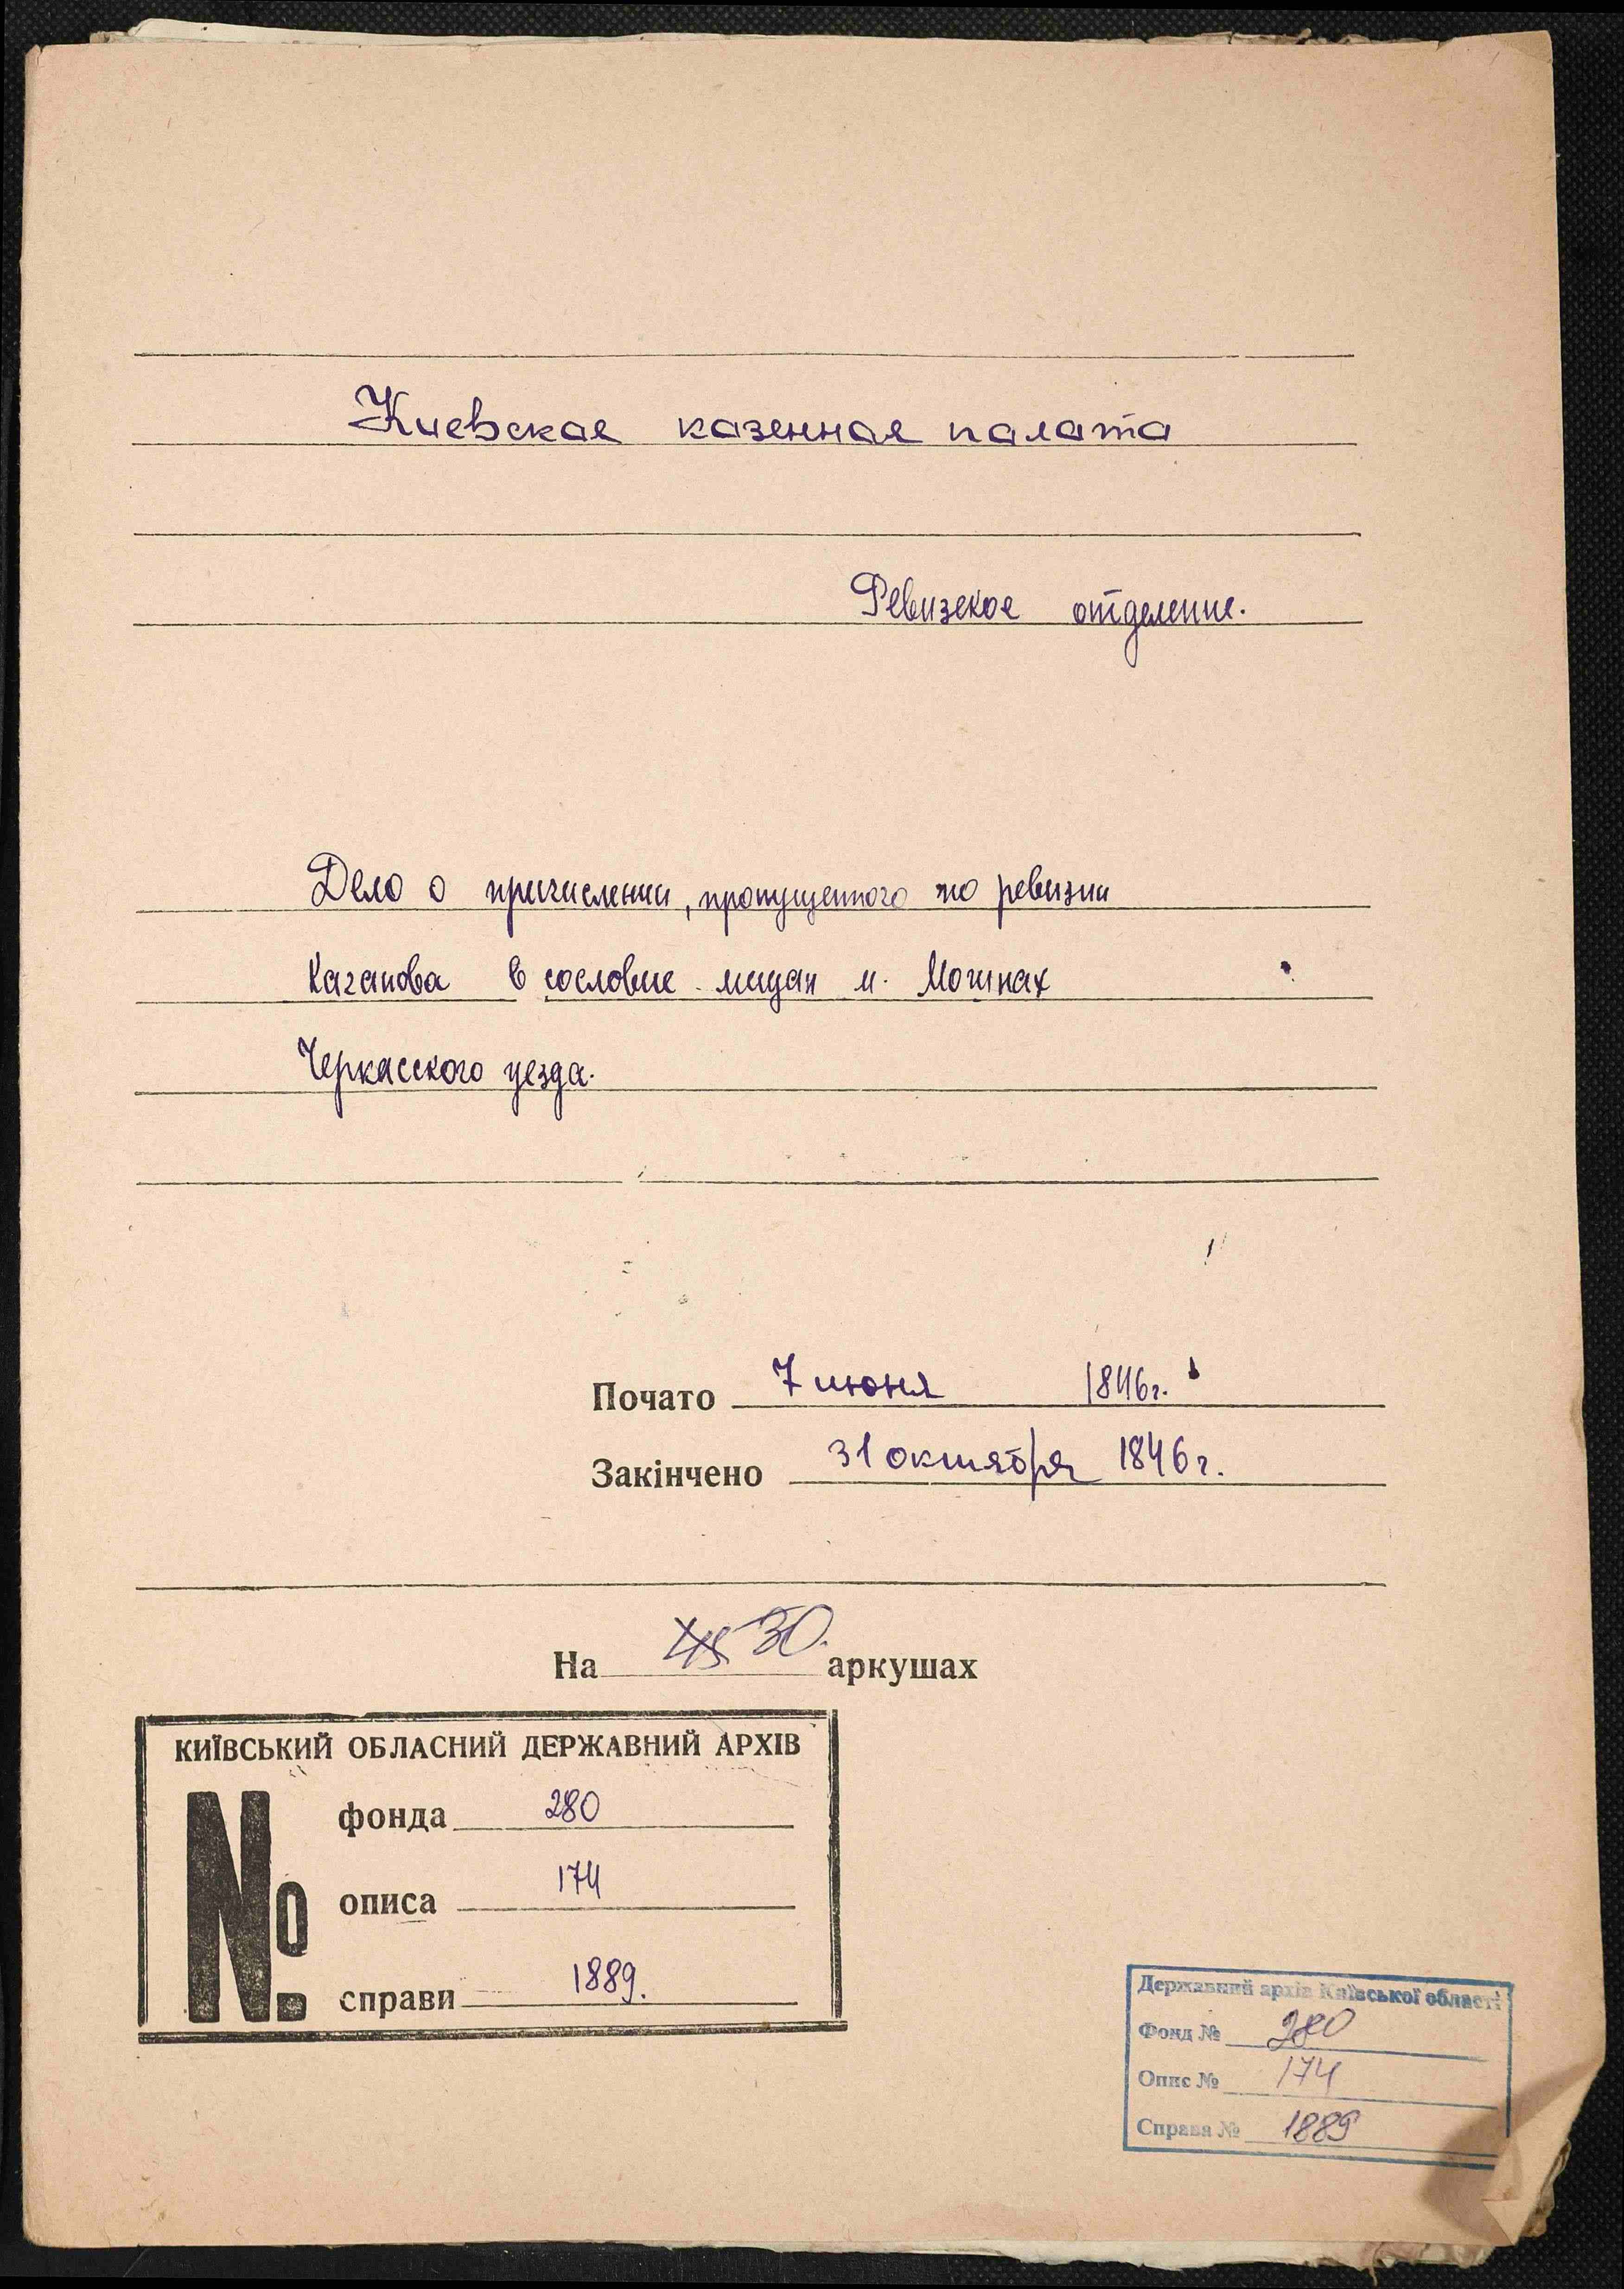 Киевская казенная палата
Ревизское отделение.
Дело о причислении, пропущенного по ревизии
Каганова в сословие мищан м. Мошнах
Черкасского уезда.
Почато 7 июня 1846г.
Закінчено 31 октября 1846г.
На 30. аркушах
КИЇВСЬКИЙ ОБЛАСНИЙ ДЕРЖАВНИЙ АРХІВ
№
фонда 280
описа 174
справи 1889.
Державний архів Київської області
Фонд № 280
Опис № 174
Справа № 1889